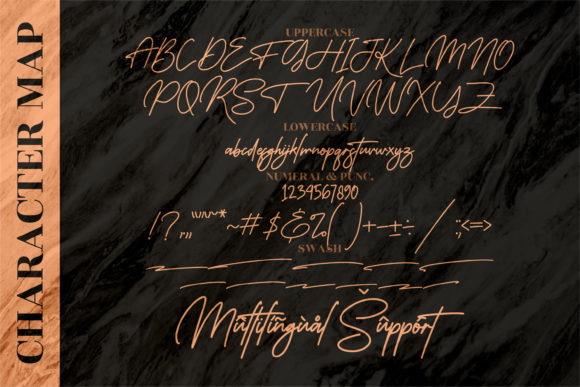 CHARACTER MAP
UPPERCASE
ABCDEFGHIJKLMNO
PQRSTUVWXYZ
LOWERCASE
abcdefghijklmnopqrstuvwxyz
NUMERAL & PUNC.
1234567890
~#$&%()+-±÷/:;<=>
SWASH
Mūltilīñgùål Šûppôrt